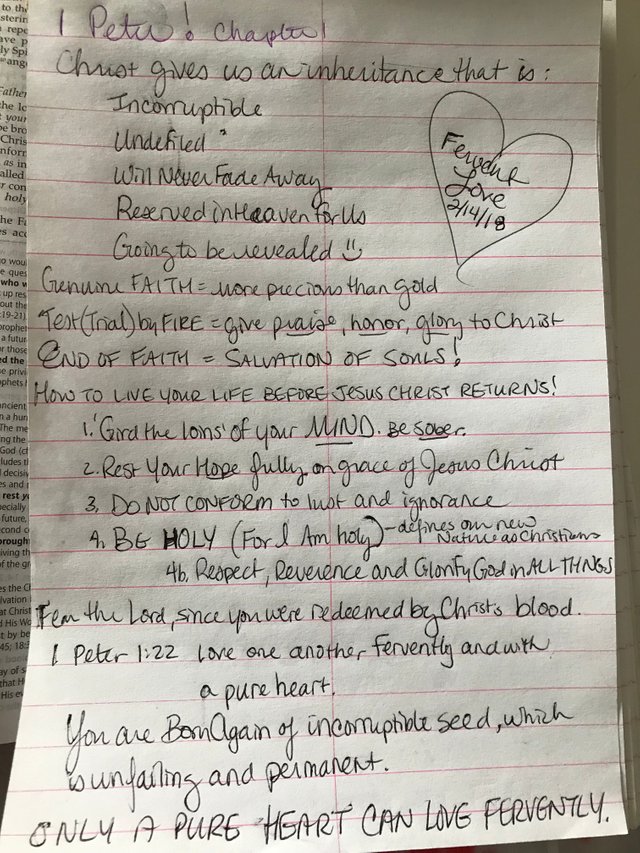 1 Peter! Chapter 1
Christ gives us an inheritance that is:
Incorruptible
Undefiled
Will Never Fade Away
Reserved in Heaven for Us
Going to be revealed
Fervent
Love
2/14/18
Genuine FAITH = more precious than gold
Test (Trial) by FIRE = give praise, honor, glory to Christ
END OF FAITH = SALVATION OF SOULS!
HOW TO LIVE YOUR LIFE BEFORE JESUS CHRIST RETURNS!
1. 'Gird the loins' of your MIND. Be Sober.
2. Rest Your Hope fully on grace of Jesus Christ
3. DO NOT CONFORM to lust and ignorance
4. BE HOLY (For I Am holy) - defines our new
Nature as Christians
4b. Respect, Reverence and Glorify God in ALL THINGS
Fear the Lord, since you were redeemed by Christ's blood.
1 Peter 1:22 Love one another fervently and with
a pure heart.
You are Born Again of incorruptible seed, which
is unfailing and permanent.
ONLY A PURE HEART CAN LOVE FERVENTLY.